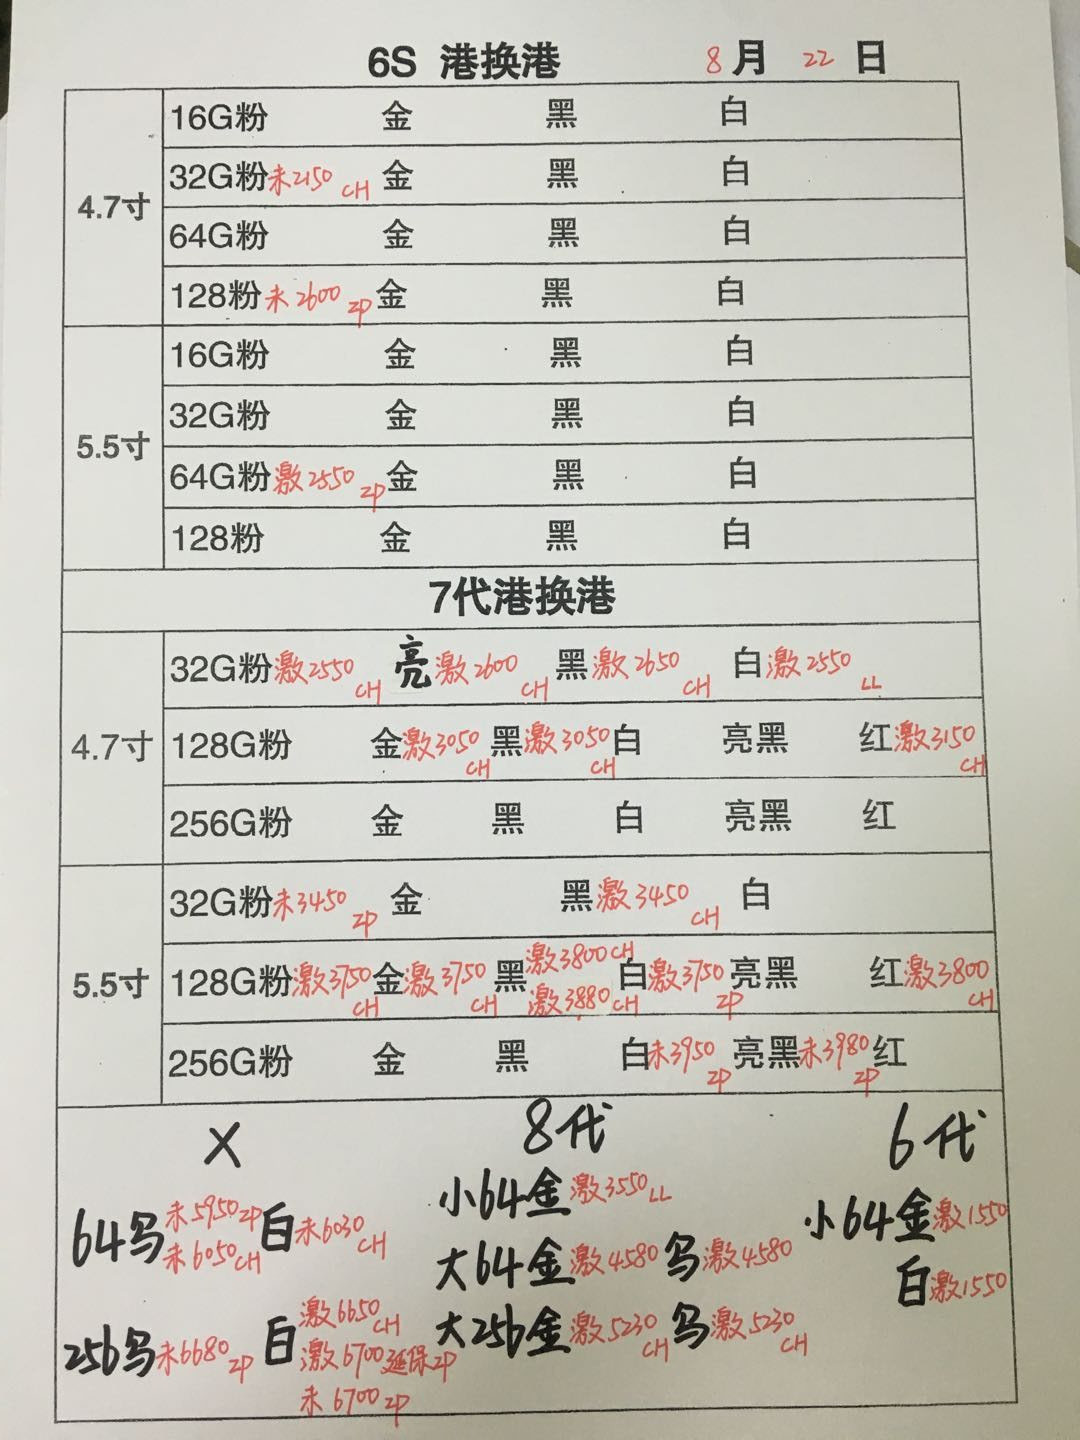 6S 港换港 8月 22 日
4.7寸
16G粉 金 黑 白
32G粉 未2150 CH 金 黑 白
64G粉 金 黑 白
128粉 未2600 ZP 金 黑 白
5.5寸
16G粉 金 黑 白
32G粉 金 黑 白
64G粉 激2550 ZP 金 黑 白
128粉 金 黑 白
7代港换港
4.7寸
32G粉 激2550 CH 亮 激2600 CH 黑 激2650 CH 白 激2550 LL
128G粉 金 激3050 CH 黑 激3050 CH 白 亮黑 红 激3150 CH
256G粉 金 黑 白 亮黑 红
5.5寸
32G粉 未3450 ZP 金 黑 激3450 CH 白
128G粉 激3750 CH 金 激3750 CH 黑 激3800 CH 激3880 CH 白 激3750 ZP 亮黑 红 激3800 CH
256G粉 金 黑 白 未3950 ZP 亮黑 未3980 ZP 红
X
64乌 未5950 ZP 未6050 CH 白 未6030 CH
256乌 未6680 ZP 白 激6650 CH
激6700 延保 ZP
未6700 ZP
8代
小64金 激3550 LL
大64金 激4580 乌 激4580
大256金 激5230 CH 乌 激5230 CH
6代
小64金 激1550
白 激1550